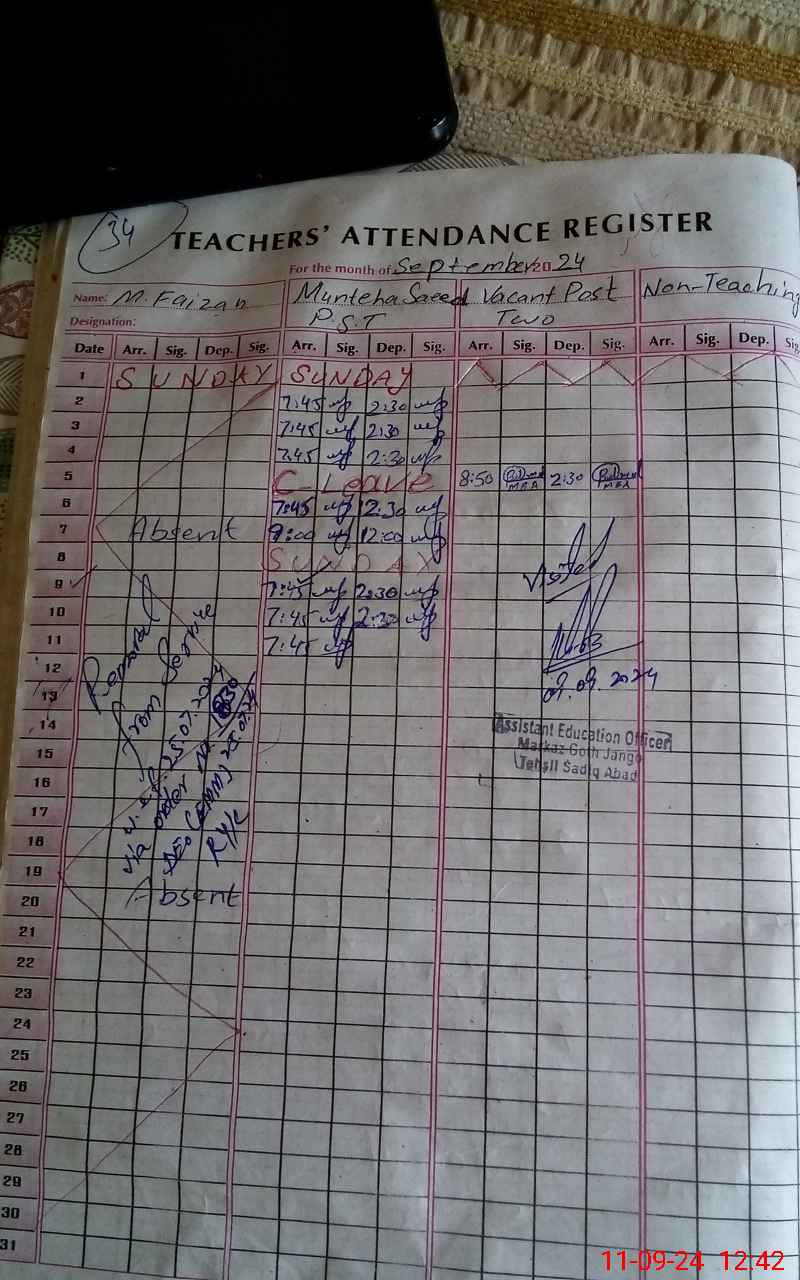 34
TEACHERS' ATTENDANCE REGISTER
For the month of September 2024
Name: M. Faizan Munteha Saeed Vacant Post Non-Teaching
Designation: P.S.T Two
Date Arr. Sig. Dep. Sig. Arr. Sig. Dep. Sig. Arr. Sig. Dep. Sig. Arr. Sig. Dep. Sig.
1 SUNDAY SUNDAY
2 7:45 2:30
3 7:45 2:30
4 7:45 2:30
5 C-Leave 8:50 2:30
6 7:45 2:30
7 Absent 9:00 12:00
8 SUNDAY
9 7:45 2:30
10 7:45 2:30
11 7:45
12
13
14
15
16
17
18
19
20 Absent
21
22
23
24
25
26
27
28
29
30
31
Removal
from Service
w.e.f. 25.07.2024
via order No
DEO 25.07.24
RYK
Visited
09.09.2024
Assistant Education Officer
Markaz Goth Jango
Tehsil Sadiq Abad
11-09-24 12:42